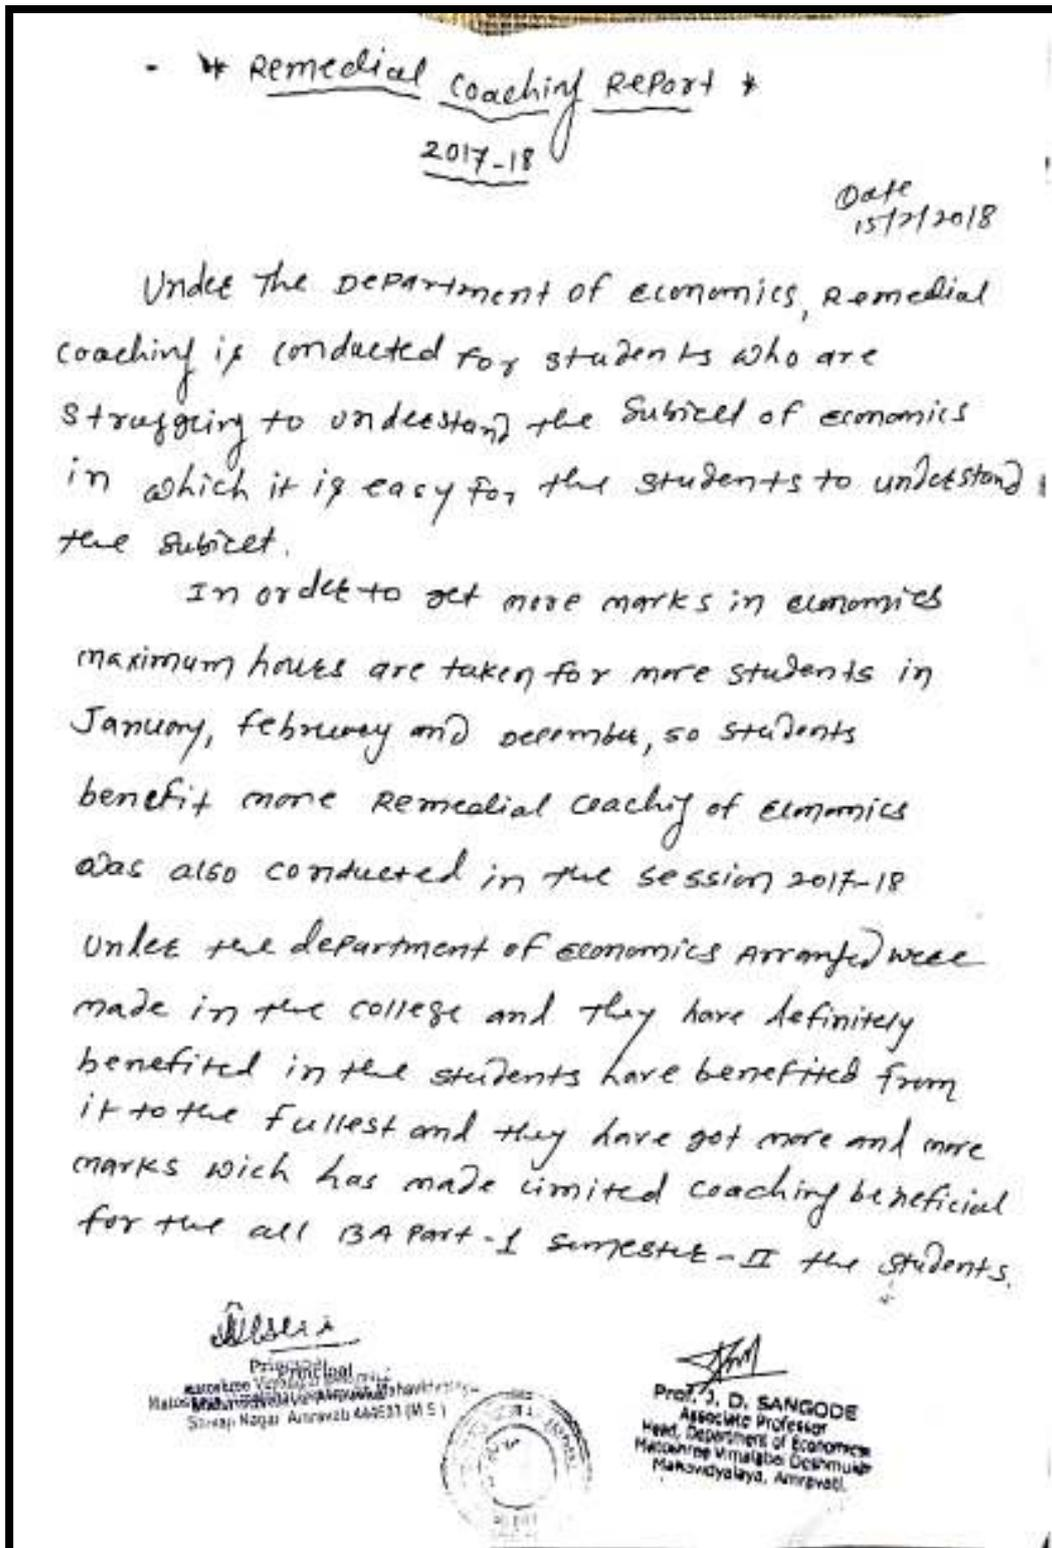 * Remedial Coaching Report *
2017-18
Date
15/2/2018
Under the Department of economics, Remedial
coaching is conducted for students who are
struggeing to understand the Subicet of economics
in which it is easy for the students to understand
the subicet.
In order to get more marks in economics
maximum hours are taken for more students in
January, february and december, so students
benefit more Remedial coachig of economics
was also conducted in the session 2017-18
Under the department of economics Arranged were
made in the college and they have definitely
benefited in the students have benefited from
it to the fullest and they have got more and more
marks wich has made limited coaching beneficial
for the all BA Part-I Semester-II the students.
Principal
Shivaji Nagar Amravati (M.S.)
Prof. J. D. SANGODE
Associate Professor
Head, Department of Economics
Matoshree Vimalabai Deshmukh
Mahavidyalaya, Amravati.